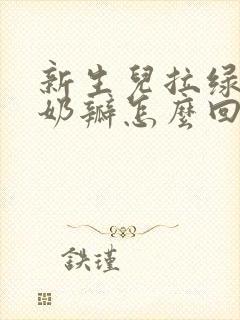 新生兒拉绿
奶瓣怎麼回
鉄瑾